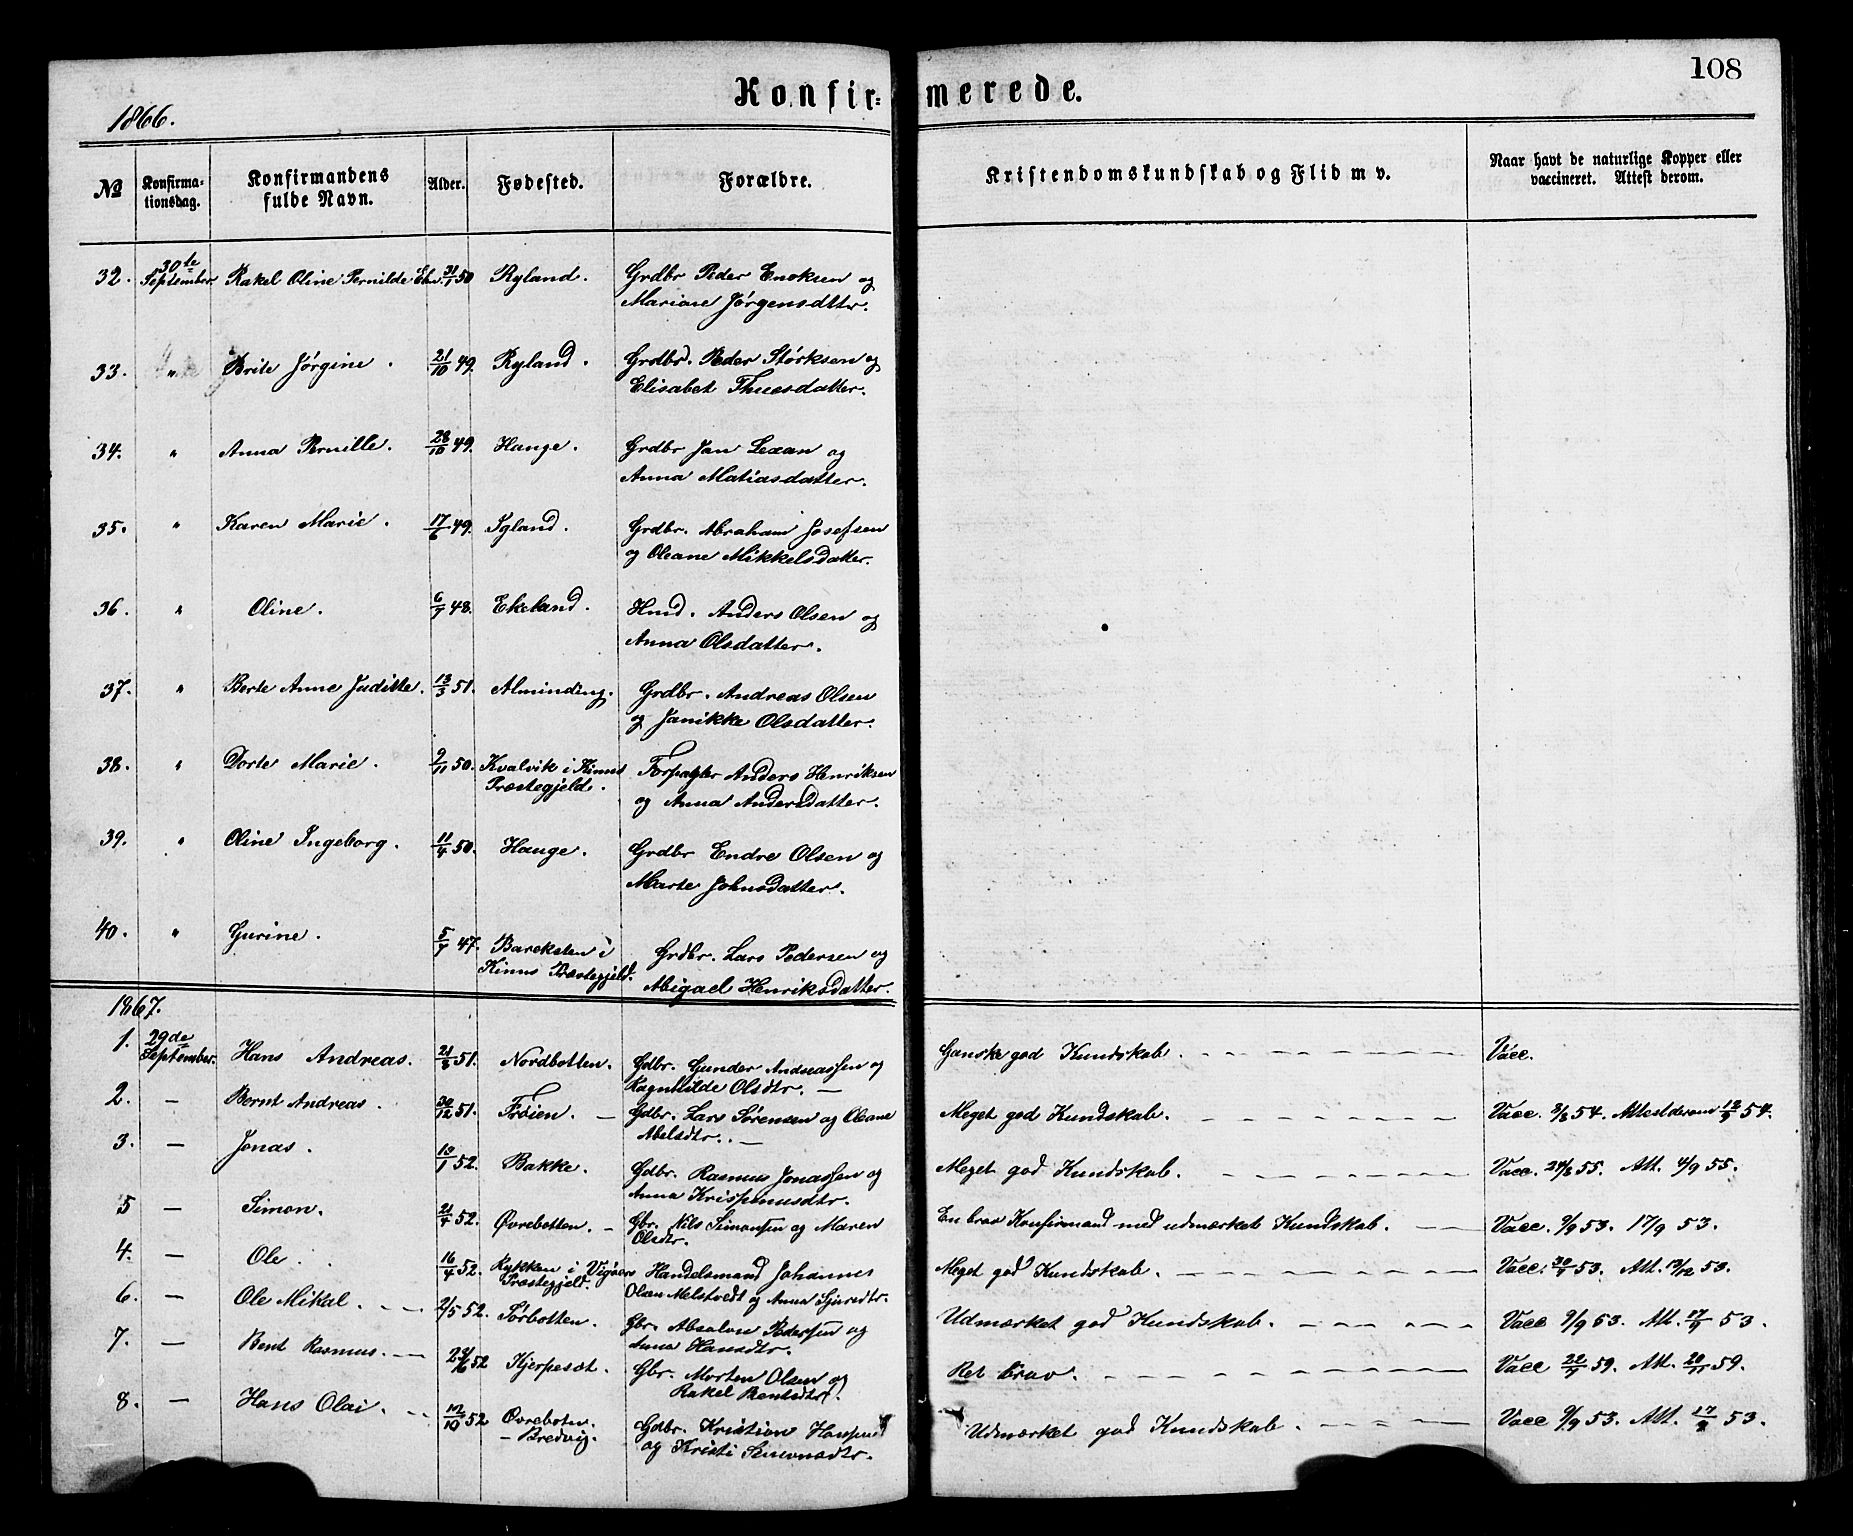 108
Konfir= merede.
1866.
№ Konfirma-tionsdag. Konfirmandens fulde Navn. Alder. Fødested. Forældre. Kristendomskundskab og Flid m v. Naar havt de naturlige Kopper eller vaccineret. Attest derom.
32. 30te September Rakel Oline Pernilde 31/1 50 Ryland. Grdbr Peder Enoksen og
Mariane Jørgensdtter.
33. " Brite Jørgine. 21/10 49. Ryland. Grdbr. Peder Størksen og
Elisabet Thuesdatter.
34. " Anna Pernille. 28/10 49. Hauge. Grdbr Jan Lexan og
Anna Matiasdatter.
35. " Karen Marie. 17/6 49. Igland. Grdbr. Abraham Josefsen
og Oleane Mikkelsdatter.
36. " Oline. 6/7 48. Ekeland. Hmd. Anders Olsen og
Anna Olsdatter.
37. " Berte Anne Juditte. 13/3 51. Alminding. Grdbr. Andreas Olsen
og Janikke Olsdatter.
38. " Dorte Marie. 9/11 50. Kvalvik i Kinns Forpagter Anders Henriksen
Præstegjeld. og Anna Andersdatter.
39. " Oline Ingeborg. 11/4 50. Hauge. Grdbr Endre Olsen og
Marte Johnsdatter.
40. " Gurine. 5/7 47. Bareksten i Grdbr. Lars Pedersen og
Kinns Præstegjeld. Abigael Henriksdatter.
1867.
1. 29de September. Hans Andreas. 21/8 51. Nordbotten. Gdbr. Gunder Andreassen og Ganske god Kundskab. Vacc.
Ragnhilde Olsdtr. —
2. — Bernt Andreas. 30/12 51. Frøien. — Gdbr. Lars Sørensen og Oleane Meget god Kundskab. Vacc. 3/8 54. Attest derom 12/9 54.
Abelsdtr. —
3. — Jonas. 13/1 52. Bakke. Gdbr. Rasmus Jonassen og Meget god Kundskab. Vacc. 24/8 55. Att. 4/9 55.
Anna Krispinusdtr.
5 — Simon. 21/4 52. Øvrebotten. — Gbr. Nils Simonsen og Maren En brav Konfirmand med udmærket Kundskab. Vacc. 9/9 53. 17/9 53.
Olsdtr.
4. — Ole. 16/4 52. Rykken i Handelsmand Johannes Meget god Kundskab. Vacc. 20/7 53. Att. 12/12 53.
Præstegjeld. Olsen Melstvedt og Anna Sjurdtr.
6. — Ole Mikal. 2/5 52. Sørbotten. Gbr. Absalon Pedersen og Udmærket god Kundskab. Vacc 9/9 53. Att. 17/9 53.
Anna Hansdtr.
7. — Bent Rasmus. 24/6 52 Hjerpesæt. Gbr. Morten Olsen og Ret brav. Vacc 22/9 59. Att. 20/11 59.
Rakel Bentsdtr.
8. — Hans Olai. 12/10 52 Øvreboten. Gdbr. Kristian Hansen Udmærket god Kundskab. Vacc 9/9 53. Att. 17/9 53.
— Bredvig. og Kristi Simonsdtr.